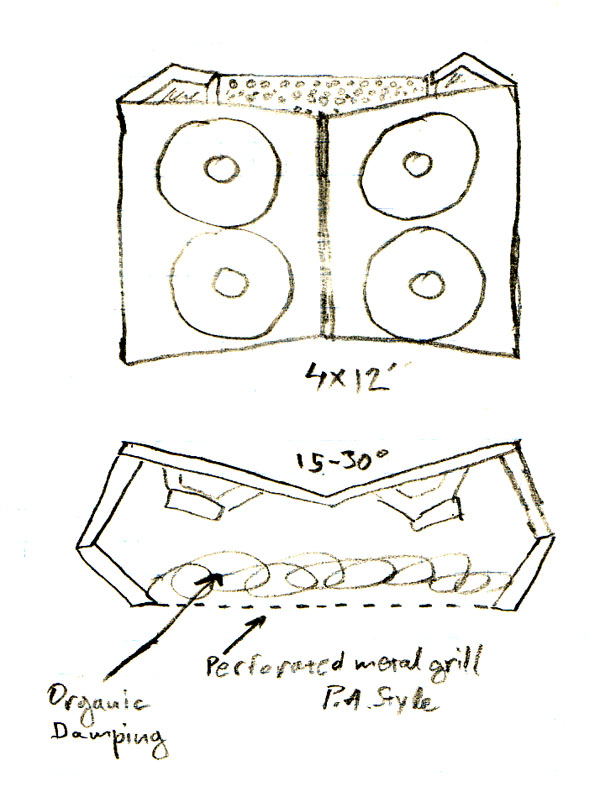 4x12"
15-30°
Perforated metal grill
P.A. Style
Organic
Damping